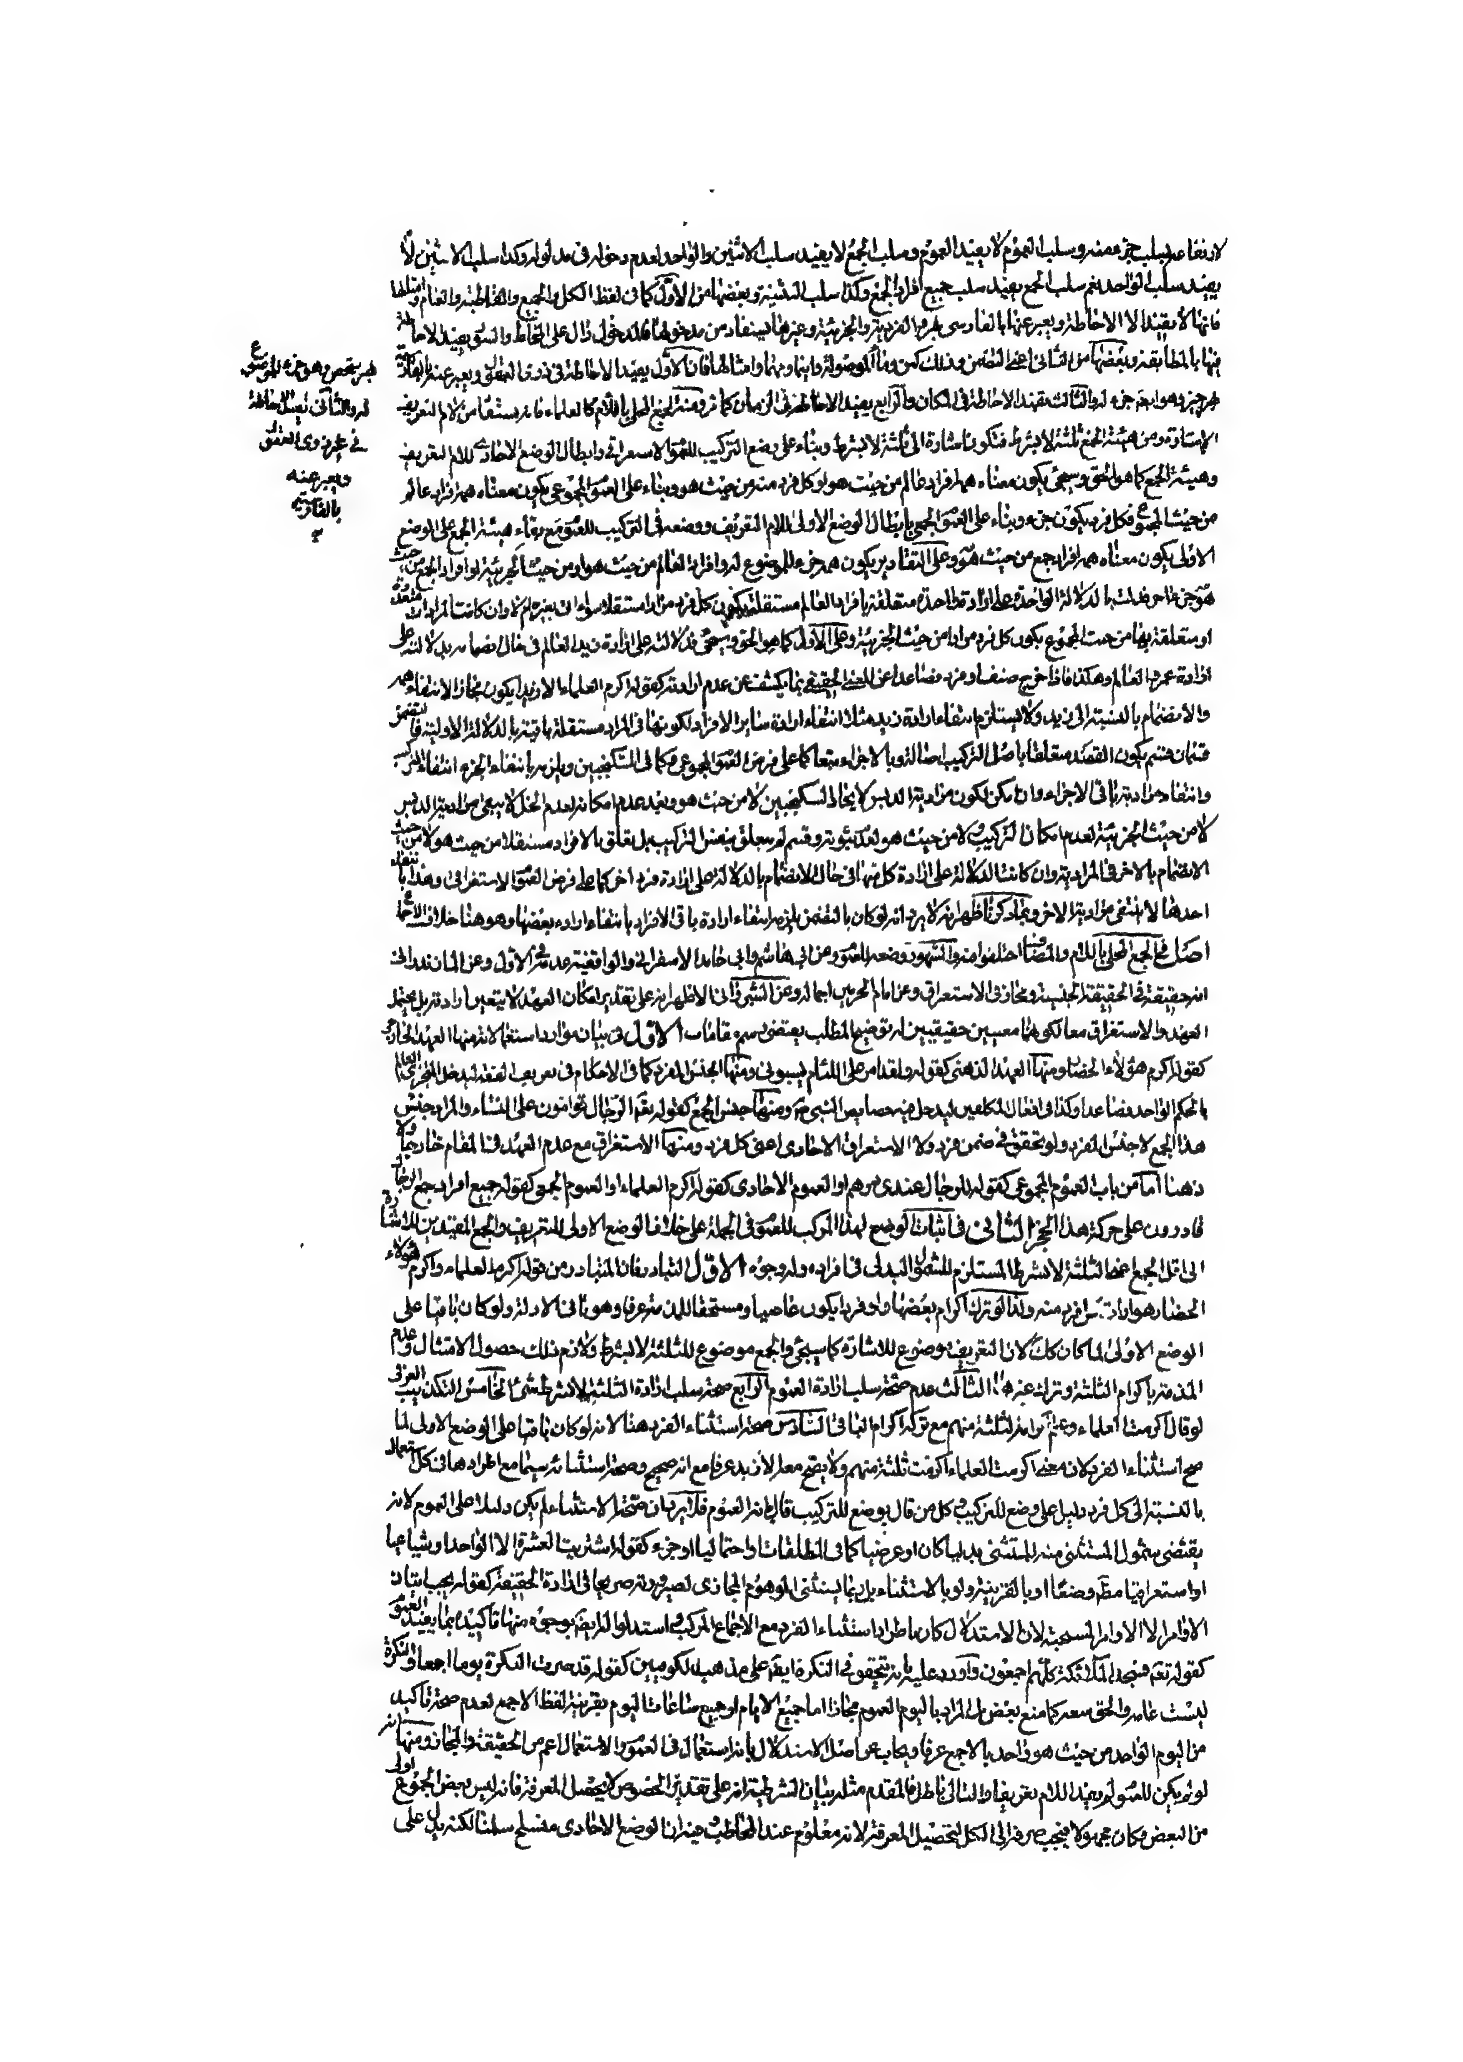 لارتفاعه بسلب جزء منه وسلب العموم لا يفيد العموم وسلب الجمع لا يفيد سلب الاثنين والواحد لعدم دخوله فى مدلوله وكذا سلب الاثنين لا
يفيد سلب الواحد نعم سلب الجمع يفيد سلب جميع افراد الجمع وكذا سلب التثنية وبعضها من الاول كما فى لفظ الكل والجميع والقاطبة والعام وامثالها
فانها لا يفيد الا الاحاطة ويعبر عنها بالفارسى بهمه الفردية والجزئية وغيرها يستفاد من مدخولها فالمدخول دال على المحاط والسور يفيد الاحاطة
فيها بالمطابقة وبعضها من الثانى اعنى التضمن وذلك كمن وما الموصولة واينما ومهما وامثالها فان الاول يفيد الاحاطة فى ذوى العقول ويعبر عنه بالفارسية
هر چيز وهو جزء له والثالث يفيد الاحاطة فى المكان والرابع يفيد الاحاطة فى الزمان كما فر ومنه الجمع المحلى باللام كالعلماء فانه يستفاد من لام التعريف
الاشارة ومن هيئة الجمع ثلثة لا بشرط فتكون اشارة الى ثلثة لا بشرط وبناء على وضع التركيب للعموم الاستغراقى وابطال الوضع الاحادى للام التعريف
وهيئة الجمع كما هو الحق وسيجئ يكون معناه همه افراد عالم من حيث هو لو كل فرد منه من حيث هو وبناء على العموم المجموعى يكون معناه همه افراد عالم
من حيث المجموع فكل فرد يكون جزء وبناء على العموم الجمعى بابطال الوضع الاولى للام التعريف ووضعه فى التركيب للعموم مع بقاء هيئة الجمع على الوضع
الاولى يكون معناه همه افراد جمع من حيث هو وعلى التقادير يكون همه جزء للموضوع له وافراد العالم من حيث هو او من حيث الجزئية او افراد الجمع من حيث
هو جزء اخر فدلت بالدلالة الواحدة على ارادة واحدة متعلقة بافراد العالم مستقلة فيكون كل فرد مرادا مستقلا سواء ان بغيره ام لا وان كانت المرادات متعددة
او متعلقة بها من حيث المجموع يكون كل فرد مرادا من حيث الجزئية وعلى الاول كما هو الحق وسيجئ فدلالته على ارادة زيد العالم فى حال انضمامه بدلالته على
ارادة عمرو العالم وهكذا فاذا خرج صنف او فرد فصاعدا عن المعنى الحقيقى بما يكشف عن عدم ارادته كقوله اكرم العلماء الا زيدا يكون مجازا لانتفاء همه
والانضمام بالنسبة الى زيد ولا يستلزم انتفاء ارادة زيد مثلا انتفاء ارادة ساير الافراد لكونها فى المراد مستقلة باقية بالدلالة الاولية فالتضمن
قسمان قسم يكون القصد متعلقا باصل التركيب اصالة وبالاجزاء تبعا كما على فرض العموم المجموعى وكما فى السكنجبين ويلزمه بانتفاء الجزء انتفاء التركيب
وانتفاء مرادية باقى الاجزاء وان لم يكن لكون مرادية الدبس لايجاد السكنجبين لا من حيث هو وبعد عدم امكانه لعدم الخل لا يبقى مرادية الدبس
لا من حيث الجزئية لعدم امكان التركيب ولا من حيث هو لعدم ثبوته وقسم لم يتعلق بنفس التركيب بل تعلق بالافراد مستقلا من حيث هو لا من حيث
الانضمام بالاخر فى المرادية وان كانت الدلالة على ارادة كل منها فى حال الانضمام بالدلالة على ارادة فرد اخر كما على فرض العموم الاستغراقى وهذا بانتفاء
احدها لا ينتفى مرادية الاخر وبما ذكرنا ظهر انه لا يرد انه لو كان بالتضمن يلزم انتفاء ارادة باقى الافراد بانتفاء ارادة بعضها وهو هنا خلاف الاجماع
اصل فى الجمع المحلى باللام والمضاف اختلفوا فيه والمشهور وضعه للعموم وعن ابى هاشم وابى حامد الاسفرانى والواقفية عدمه فى الاول وعن المازندرانى
انه حقيقة فى الحقيقة الجنسية ومجاز فى الاستغراق وعن امام الحرمين اجماله وعن الشيروانى الاظهر انه على تقدير امكان العهد لا يتعين ارادته بل يحتمل
العهد والاستغراق معا لكونهما معنيين حقيقيين له توضيح المطلب يقتضى رسم مقامات الاول فى بيان موارد استعمالاته منها العهد الخارجى
كقوله اكرم هؤلاء الحضار ومنها العهد الذهنى كقوله ولقد امر على اللئام يسبونى ومنها الجنس المفرد كما فى الاحكام فى تعريف الفقه ليدخل المتجزى العالم
بالحكم الواحد فصاعدا وكذا فى افعال المكلفين ليدخل فيه خصايص النبى ص ومنها جنس الجمع كقوله تعالى الرجال قوامون على النساء والمراد جنس
هذا الجمع لا جنس المفرد ولو تحقق فى ضمن فرد ولا الاستغراق الاحادى اعنى كل فرد ومنها الاستغراق مع عدم العهد فى المقام خارجا ولا
ذهنا اما من باب العموم المجموعى كقوله للرجال عندى درهم او العموم الاحادى كقوله اكرم العلماء او العموم الجمعى كقوله جميع افراد جمع الرجال
قادرون على حركة هذا الحجر الثانى فى اثبات الوضع لهذا المركب للعموم فى الجملة على خلاف الوضع الاولى للتعريف والجمع المفيدين للاشارة
الى اقل الجمع اعنى الثلثة لا بشرط المستلزم للشمول البدلى فى افراده وله وجوه الاول التبادر فان المتبادر من قوله اكرم العلماء واكرم هؤلاء
الحضار هو ارادة كل فرد منه ولذا لو ترك اكرام بعضها ولو فردا يكون عاصيا ومستحقا للمذمة عرفا وهو ثانى الادلة ولو كان باقيا على
الوضع الاولى لما كان كك لان التعريف موضوع للاشارة كما سيجئ والجمع موضوع للثلثة لا بشرط ولازم ذلك حصول الامتثال وعدم
المذمة باكرام الثلثة وترك غيرها الثالث عدم صحة سلب ارادة العموم الرابع صحة سلب ارادة الثلثة لا بشرط شئ الخامس التكذيب العرفى
لو قال اكرمت العلماء وعلم اكرامه لثلثة منهم مع تركه اكرام الباقى السادس صحة استثناء الفرد هنا لانه لو كان باقيا على الوضع الاولى لما
صح استثناء الفرد لان معنى اكرمت العلماء اكرمت ثلثة منهم ولا يصح معه الا زيد عرفا مع انه صحيح وصحة استثنائه سيما مع اطرادها فى كل استعمال
بالنسبة الى كل فرد دليل على وضع للتركيب وكل من قال بوضع للتركيب قال انه العموم فلا يرد ان صحة الاستثناء لم يكن دليلا على العموم لانه
يقتضى شمول المستثنى منه للمستثنى بدليا كان او عرضيا كما فى المطلقات واحتماليا او جزء كقوله اشتريت العشرة الا الواحد او شياعيا
او استغراقيا مط وضعا او بالقرينة ولو بالاستثناء بل ربما يستثنى الموهوم المجازى لصيرورته صريحا فى ارادة الحقيقة كقوله يجب اتيان
الاوامر الا الاوامر المستحبة لان الاستدلال كان باطراد استثناء الفرد مع الاجماع المركب واستدلوا له ايضا بوجوه منها تاكيده بما يفيد العموم
كقوله تعه فسجد الملائكة كلهم اجمعون واورد عليه بانه يتحقق فى النكرة ايضا على مذهب الكوفيين كقوله قد صرت البكرة يوما اجمعا والنكرة
ليست عامة والحق معه كما منع بعض بل المراد باليوم العموم مجازا اما جميع الايام او جميع ساعات اليوم بقرينة لفظ الاجمع لعدم صحة تاكيد
من اليوم الواحد من حيث هو واحد بالاجمع عرفا ويجاب عن اصل الاستدلال بانه استعمال فى العموم والاستعمال اعم من الحقيقة والمجاز ومنها انه
لو لم يكن للعموم لم يفيد اللام تعريفا والتالى باطل فالمقدم مثله بيان الشرطية انه على تقدير الخصوص لا يحصل المعرفة فانه ليس بعض الجموع اولى
من البعض فكان مجهولا فيجب صرفه الى الكل لتحصيل المعرفة لانه معلوم عند المخاطب وفيه ان الوضع الاحادى منسلخ سلمنا لكنه يدل على
هر شخص وهو جزء للموضوع
له والثانى يفيد الاحاطة
فى غير ذوى العقول
ويعبر عنه
بالفارسية